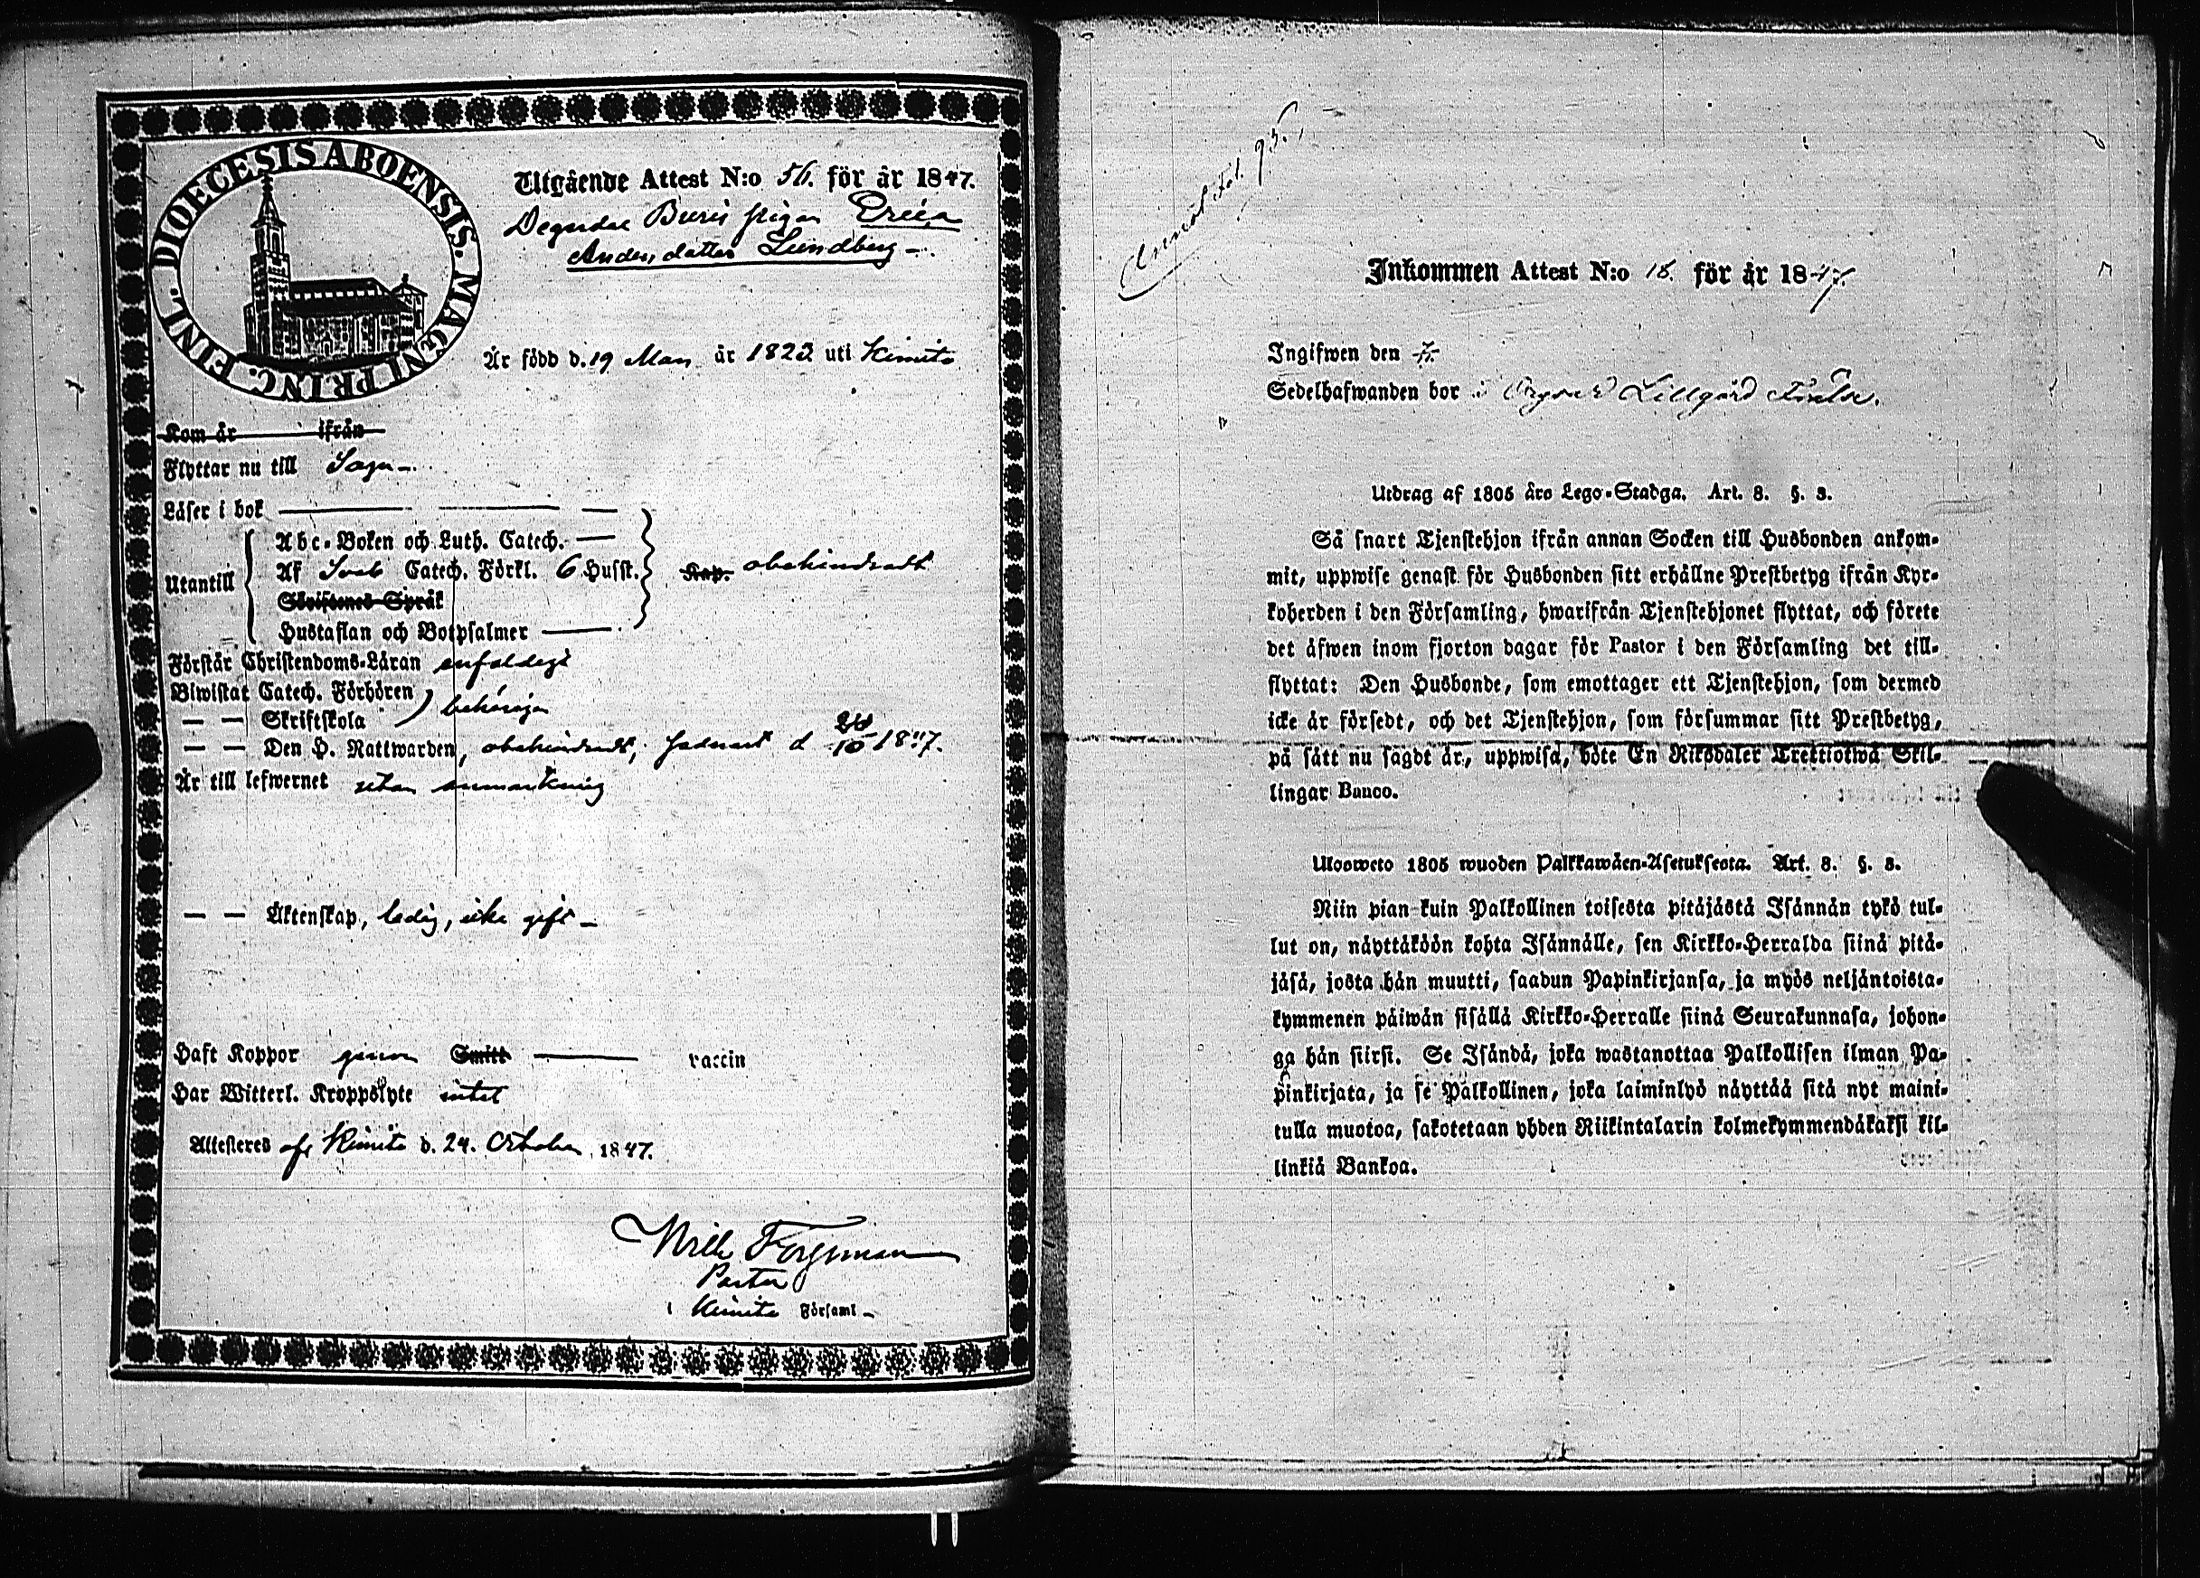 DIOECESIS ABOENSIS. MAGNI PRINC. FINL.
Utgående Attest N:o 56. för år 1847.
Degerdal Bueris pigan Erica
Andersdotter Lundberg
Är född d. 19 Mars år 1823 uti Kimito
Kom år ifrån
Flyttar nu till Sagu
Läser i bok
Utantill
Abc-Boken och Luth. Catech.
Af Sveb Catech. Förkl. 6 Hufst.
Skriftenes Språk
Hustaflan och Botpsalmer
Kap. obehindradt
Förstår Christendoms-Läran enfaldigt
Biwistat Catech. Förhören
— — Skriftskola
behörigen
— — Den H. Nattwarden, obehindradt, d 24/10 1847.
Är till lefwernet utan anmärkning
— — Äktenskap, ledig, icke gift
Haft Koppor genom Smitt vaccin
Har Witterl. Kroppslyte intet
Attesteras af Kimito d. 24. October 1847.
Wilh Forssman
Pastor
i Kimito Församl
95.
Inkommen Attest N:o 18. för år 1847.
Ingifwen den
Sedelhafwanden bor i Lillgård
Utdrag af 1805 års Lego-Stadga. Art. 8. §. 3.
Så snart Tjenstehjon ifrån annan Socken till Husbonden ankom-
mit, uppwise genast för Husbonden sitt erhållne Prestbetyg ifrån Kyr-
koherden i den Församling, hwarifrån Tjenstehjonet flyttat, och förete
det äfwen inom fjorton dagar för Pastor i den Församling det till-
flyttat: Den Husbonde, som emottager ett Tjenstehjon, som dermed
icke är försedt, och det Tjenstehjon, som försummar sitt Prestbetyg,
på sätt nu sagdt är, uppwisa, böte En Riksdaler Trettiotwå Skil-
lingar Banco.
Ulosweto 1805 wuoden Palkkawäen-Asetuksesta. Art. 8. §. 3.
Niin pian kuin Palkollinen toisesta pitäjästä Isännän tykö tul-
lut on, näyttäköön kohta Isännälle, sen Kirkko-Herralda siinä pitä-
jäsä, josta hän muutti, saadun Papinkirjansa, ja myös neljäntoista-
kymmenen päiwän sisällä Kirkko-Herralle siinä Seurakunnasa, johon-
ga hän siirsi. Se Isändä, joka wastanottaa Palkollisen ilman Pa-
pinkirjata, ja se Palkollinen, joka laiminlyö näyttää sitä nyt maini-
tulla muotoa, sakotetaan yhden Riikintalarin kolmekymmendäkaksi kil-
linkiä Bankoa.